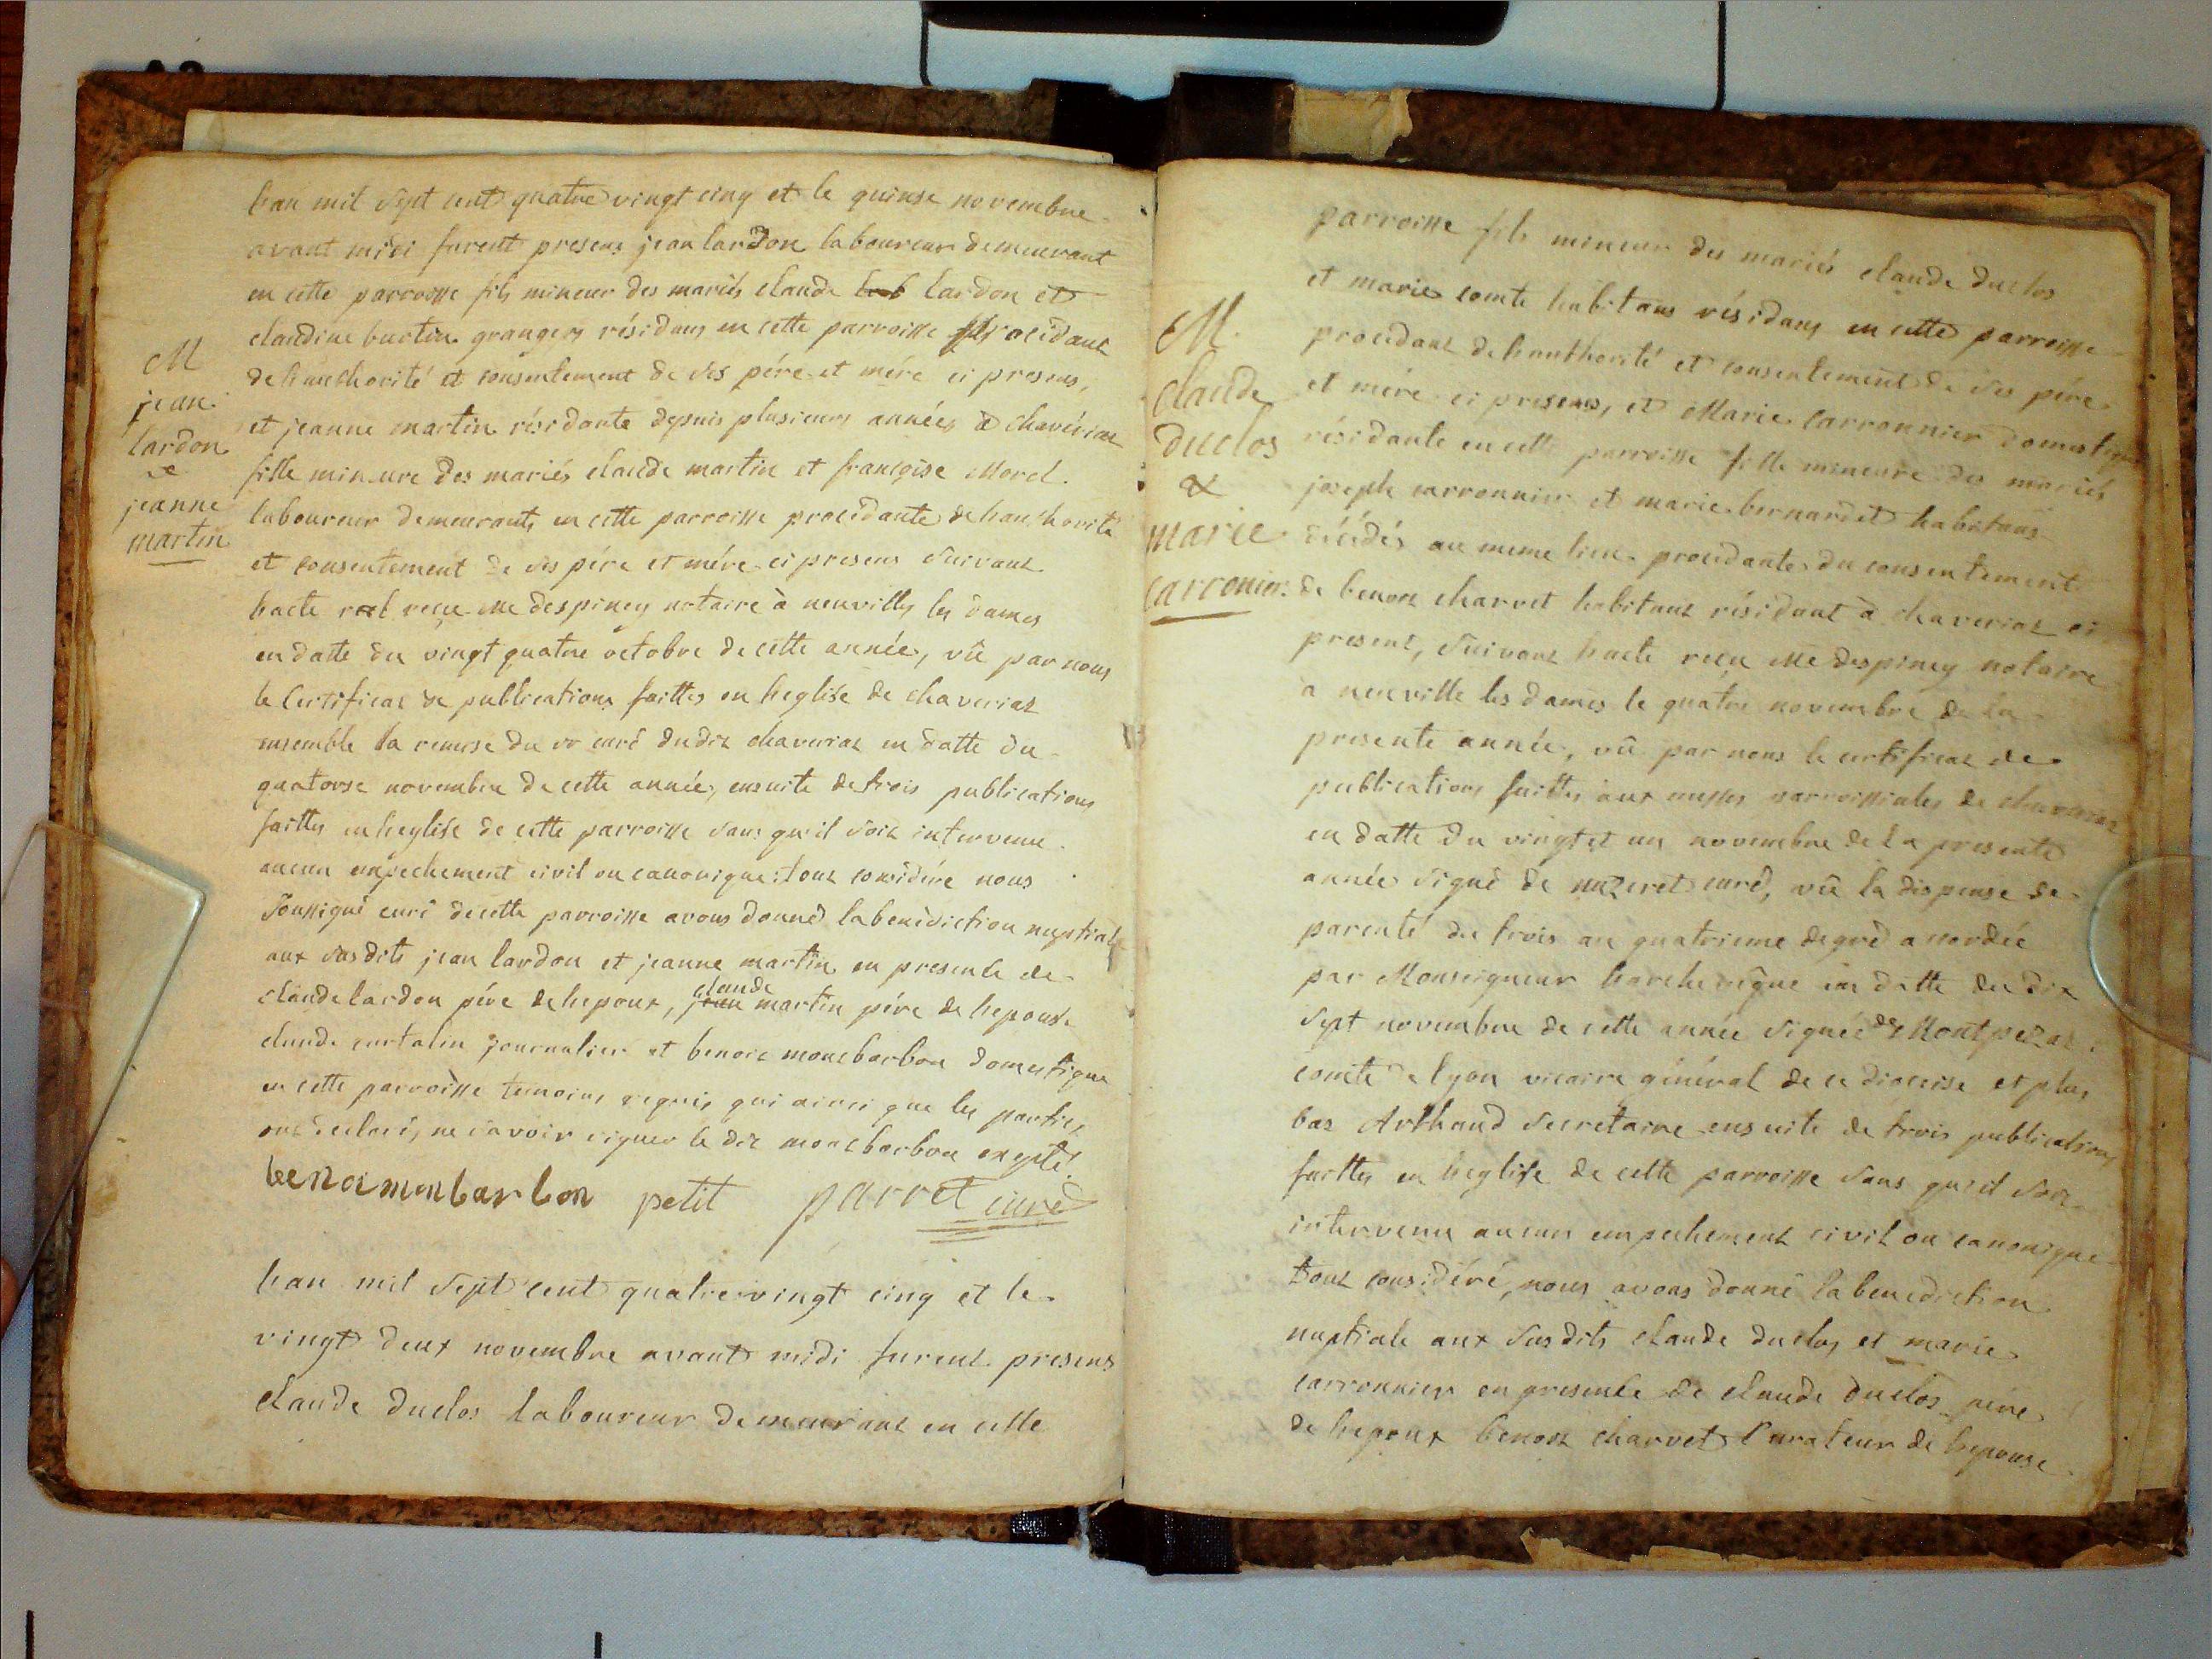 lan mil sept cent quatre vingt cinq et le quinse novembre
avant midi furent presens jean lardon laboureur demeurant
en cette parroisse fils mineur des mariés claude lardon et
claudine burtin grangers résidans en cette parroisse procedant
de lauthorité et consentement de ses pére et mére ci presens,
et jeanne martin résidante depuis plusieurs années à chavériat
fille mineure des mariés claude martin et françoise Morel
laboureur demeurants en cette parroisse procédante de lauthorité
et consentement de ses pére et mére ci presens suivant
lacte reçu Me despiney notaire à neuville les dames
en datte du vingt quatre octobre de cette année, vû par nous
le Certificat de publications faittes en leglise de chaveriat
ensemble la remise du sr curé dudit chaveriat en datte du
quatorse novembre de cette année, ensuite de trois publications
faittes en leglise de cette parroisse sans qu'il soit intervenu
aucun empechement civil ou canonique: tout considéré nous
soussigné curé de cette parroisse avons donné la benédiction nuptiale
aux susdits jean lardon et jeanne martin en presence de
claude lardon pére de lepoux, claude martin pére de lepouse
claude curtalin journalier et benoit montbarbon domestique
en cette parroisse temoins requis qui ainsi que les parties
ont declaré, ne savoir signer le dit montbarbon exepté.
benoimonbarbon petit parret curé
M
jean
lardon
&
jeanne
martin
lan mil sept cent quatre vingt cinq et le
vingt deux novembre avant midi furent presens
claude duclos laboureur demeurant en cette
parroisse fils mineur des mariés claude duclos
et marie comte habitans résidans en cette parroisse
procedant de lauthorité et consentement de ses pére
et mére ci presens, et Marie carronnier domestique
résidante en cette parroisse fille mineure des mariés
joseph carronnier et marie bernardet habitans
décédés au meme lieu procedante du consentement
de benoit charvet habitant résidant à chaveriat ci
present, suivant lacte reçu Me despiney notaire
a neuville les dames le quatre novembre de la
presente année, vû par nous le certificat de
publications faittes aux messes parroissiales de chaveriat
en datte du vingt et un novembre de la presente
année signé de curé, vû la dispense de
parenté du trois au quatrieme degré accordée
par Monseigneur larchevêque en datte du dix
sept novembre de cette année signée de Montpezat
comte de lyon vicaire général de ce diocèse et plus
bas Arthaud secretaire ensuite de trois publications
faittes en leglise de cette parroisse sans qu'il soit
intervenu aucun empechement civil ou canonique
tout considéré, nous avons donné la benediction
nuptiale aux susdits claude duclos et marie
carronnier en presence de claude duclos pére
de lepoux benoit charvet Curateur de lepouse
M.
claude
duclos
&
marie
carronier